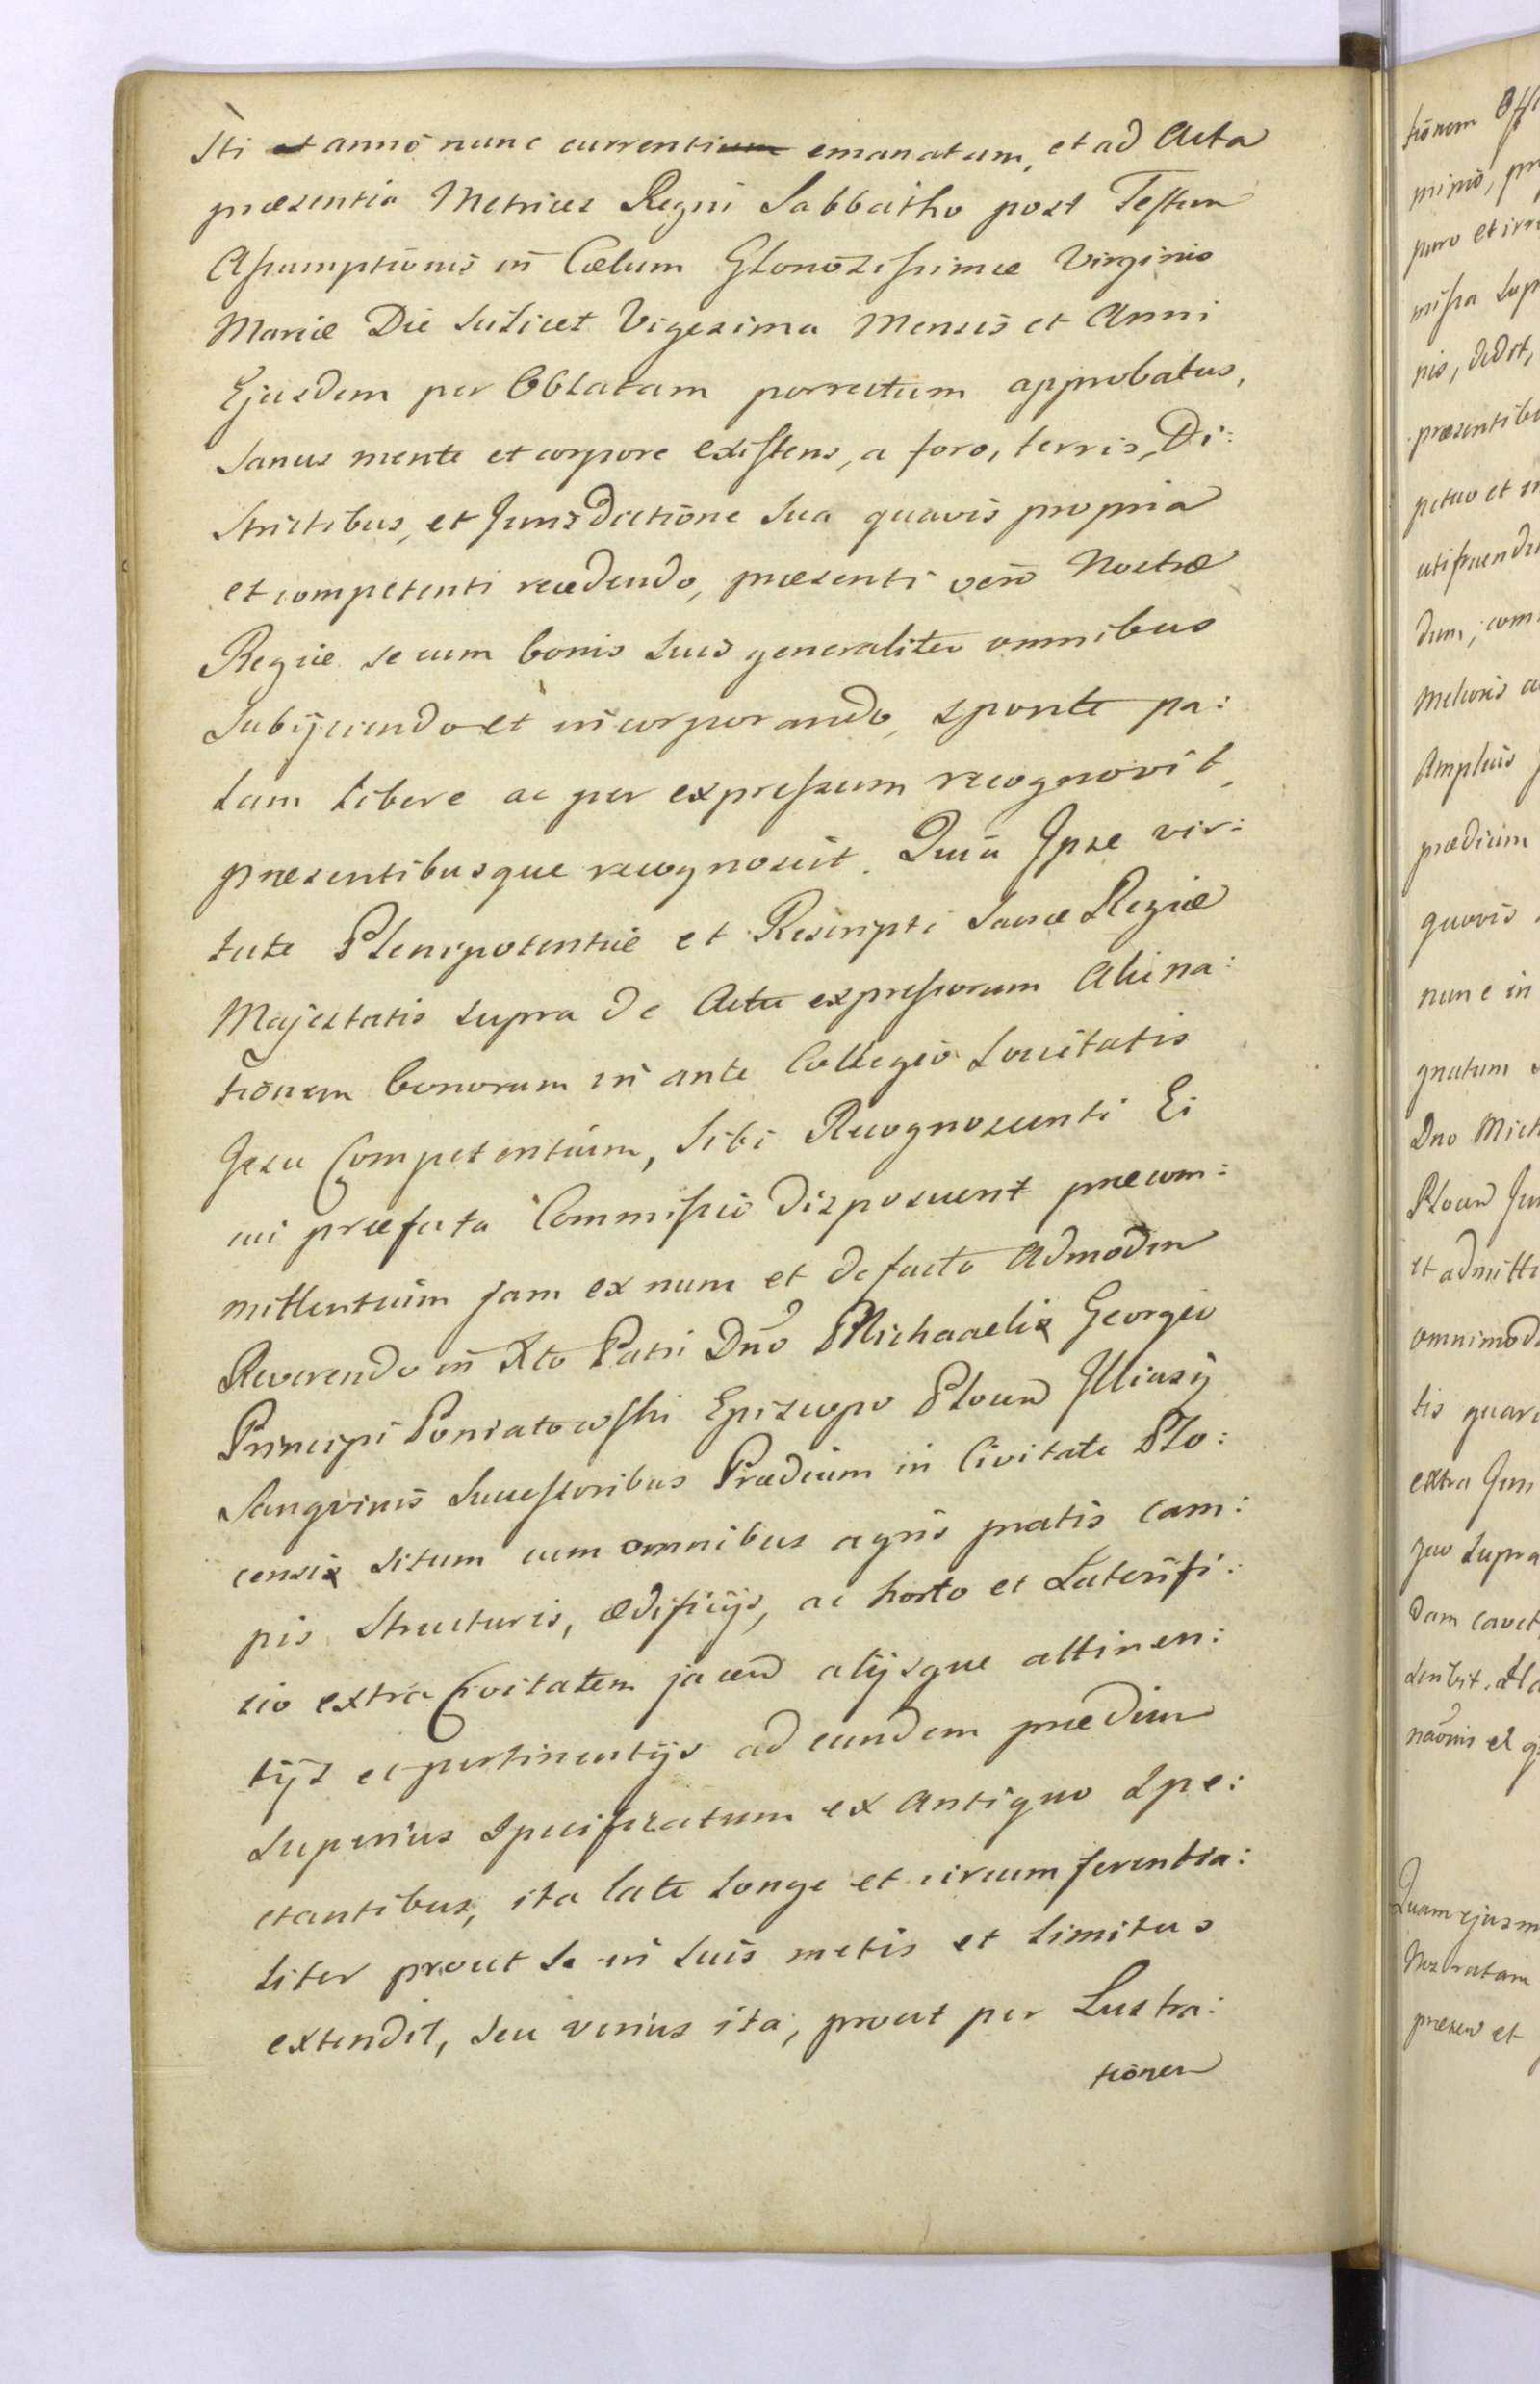 sti et anno nunc currentium emanatum, et ad Acta
præsentia Metrices Regni Sabbatho post Festum
Assumptionis in Cœlum Gloriosissimæ Virginis
Mariæ Die scilicet Vigesima Mensis et Anni
Ejusdem per Oblatam porrectum approbatus,
Sanus mente et corpore existens, a foro, terris, Di:
strictibus, et Jurisdictione sua quavis propria
et competenti recedendo, præsenti vero Nostræ
Regiæ se cum bonis suis generaliter omnibus
Subijciendo et incorporando, sponte pa:
lam libere ac per expressum recognovit,
præsentibusque recognoscit. Quia Ipse vir:
tute Plenipotentiæ et Rescripti Sacræ Regiæ
Majestatis supra de Actu expressorum Aliena:
tionem bonorum in ante Collegio Societatis
Jesu Competentium, Sibi Recognoscenti Ei
cui præfata Commissio disposuerit præcom:
mittentium jam ex nunc et de facto Admodm
Reverendo in Xto Patri Dno Michaelis Georgio
Principi Poniatowski Episcopo Plocen Illiusq
Sangvinis Successoribus Prædium in Civitate Plo:
censis situm cum omnibus agris pratis cam:
pis Structuris, ædificijs, ac horto et Laterifi:
cio extra Civitatem jacen alijsque attinen:
tijs et pertinentijs ad eundem prædium
superius specificatum ex antiquo spe:
ctantibus, ita late longe et circumferentia:
liter prout se in suis metis et limitus
extendit, seu verius ita, prout per Lustra:
tionem
tionem Offi
primo, pr
puro et irre
missa sup
nis, dedit,
præsentibu
petuo et ir
utifruendu
dum, com
melioris a
Amplius
prædium
quovis
nunc in
gnatum
Dno Mich
Plocen Ju
et admitti
omnimod
tis quar
extra Juri
geo supra
dam cavet,
nãonis et q
Quam ejusm
Nos ratam
præsen et